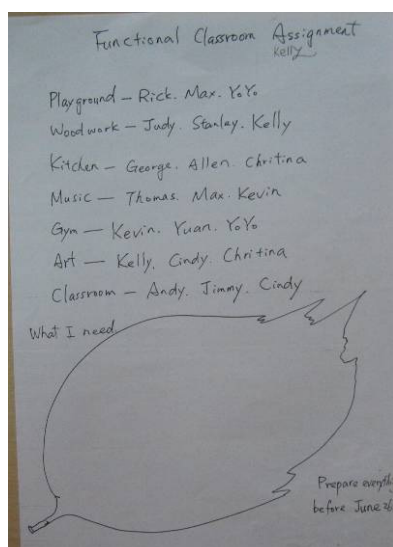 Functional Classroom Assignment
Kelly
Playground — Rick. Max. YoYo
Woodwork — Judy. Stanley. Kelly
Kitchen — George. Allen. Chritina
Music — Thomas. Max. Kevin
Gym — Kevin. Yuan. YoYo
Art — Kelly. Cindy. Chritina
Classroom — Andy. Jimmy. Cindy
What I need
Prepare
before June